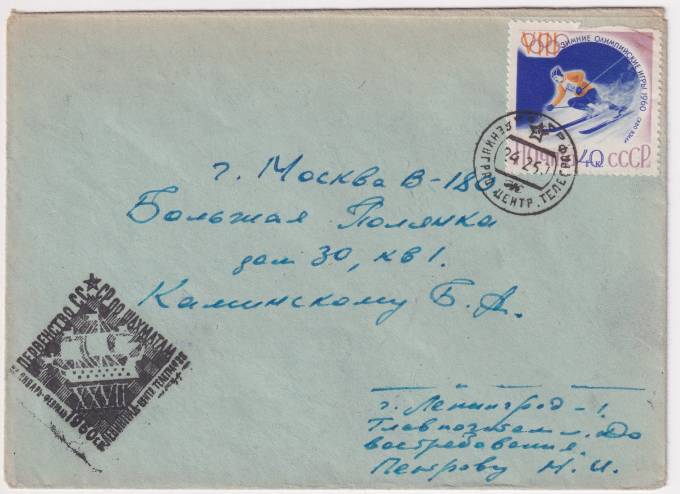 ЗИМНИЕ ОЛИМПИЙСКИЕ ИГРЫ 1960
ПОЧТА 40К СССР
ЛЕНИНГРАД ЦЕНТР. ТЕЛЕГРАФ
24 2
г. Москва В-180
Большая Полянка
дом 30, кв 1.
Каминскому Б. А.
ПЕРВЕНСТВО СССР ПО ШАХМАТАМ
XXVII
ЯНВАРЬ-ФЕВРАЛЬ 1960
ЛЕНИНГРАД
г. Ленинград-1.
Главпочтамт. До
востребования.
Петрову Н. И.